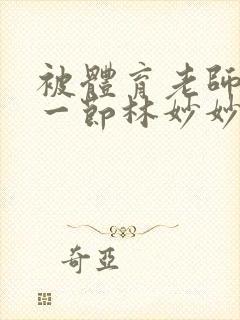 被體育老師
一節林妙妙
奇亞